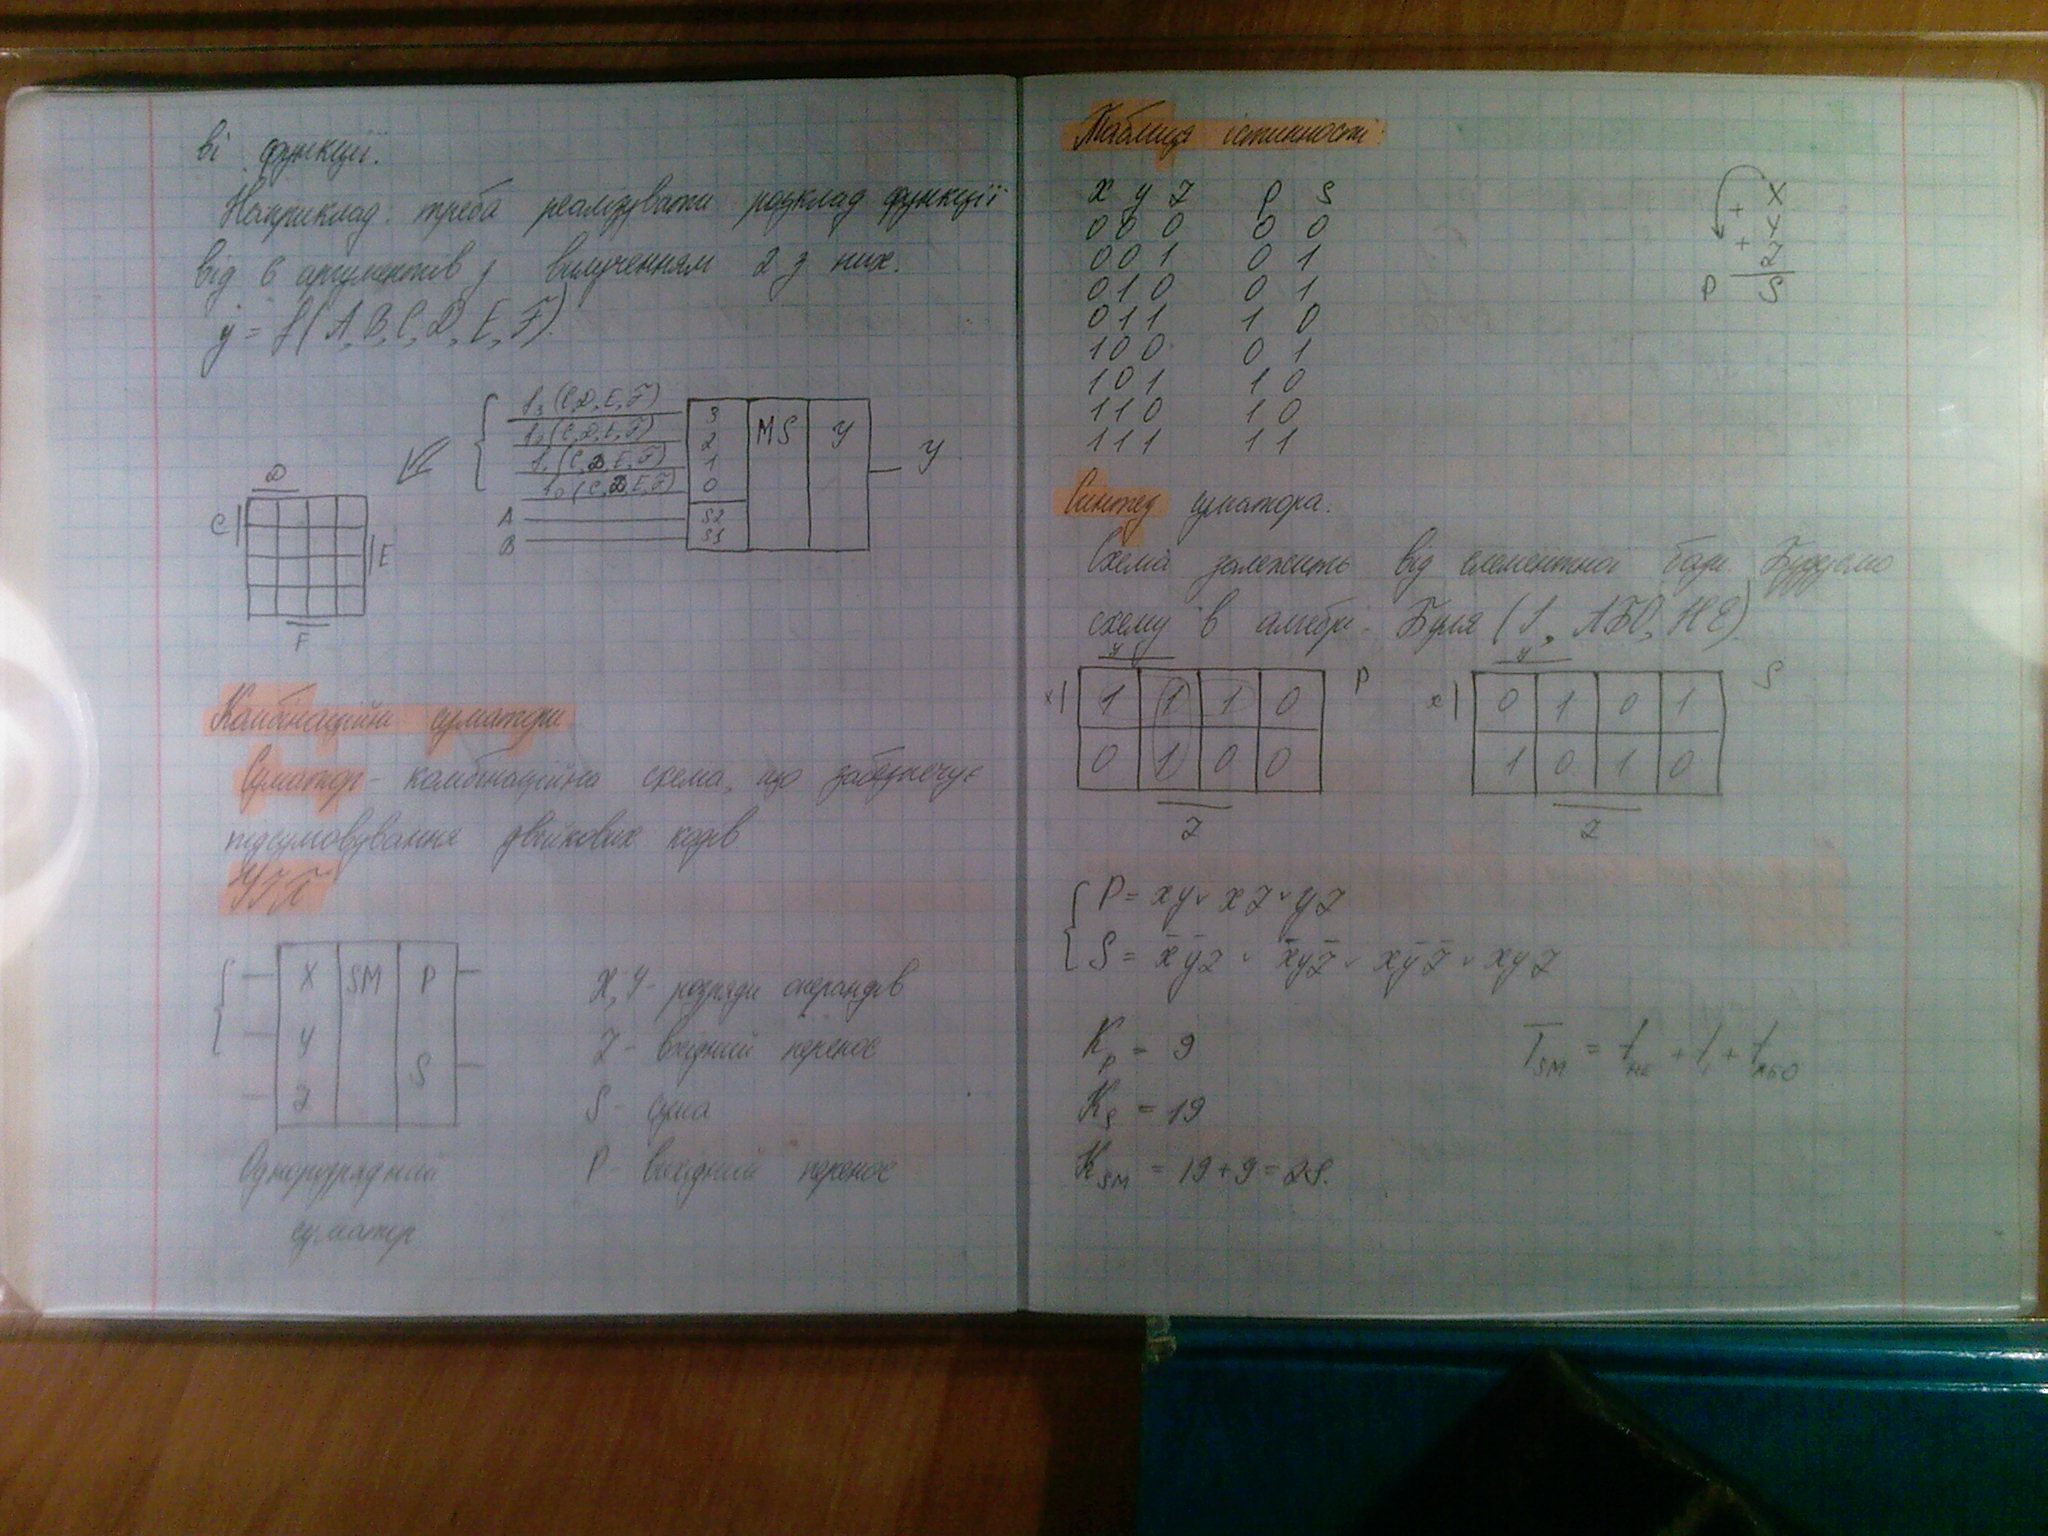 ві функції.
Наприклад: треба реалізувати розклад функції
від 6 аргументів з вилученням 2 з них.
y = f(A, B, C, D, E, F).
f₃(C,D,E,F)
f₂(C,D,E,F)
f₁(C,D,E,F)
f₀(C,D,E,F)
A
B
3 MS Y
2
1
0
S2
S1
Y
D
C
E
F
Комбінаційні суматори
Суматор - комбінаційна схема, що забезпечує
підсумовування двійкових кодів
УГП
X SM P
Y
S
Z
Однорозрядний
суматор
X, Y - розряди операндів
Z - вхідний перенос
S - сума
P - вихідний перенос
Таблиця істинності:
X Y Z P S
0 0 0 0 0
0 0 1 0 1
0 1 0 0 1
0 1 1 1 0
1 0 0 0 1
1 0 1 1 0
1 1 0 1 0
1 1 1 1 1
X
+ Y
+ Z
P S
Синтез суматора.
Схема залежить від елементної бази. Будуємо
схему в алгебрі Буля (І, АБО, НЕ)
y
x 1 1 1 0 P
0 1 0 0
Z
y
x 0 1 0 1 S
1 0 1 0
Z
P = xy ∨ xz ∨ yz
S = x̄ȳz ∨ x̄yz̄ ∨ xȳz̄ ∨ xyz
K_P = 9
K_S = 19
K_SM = 19 + 9 = 28.
T_SM = t_НЕ + t_І + t_АБО